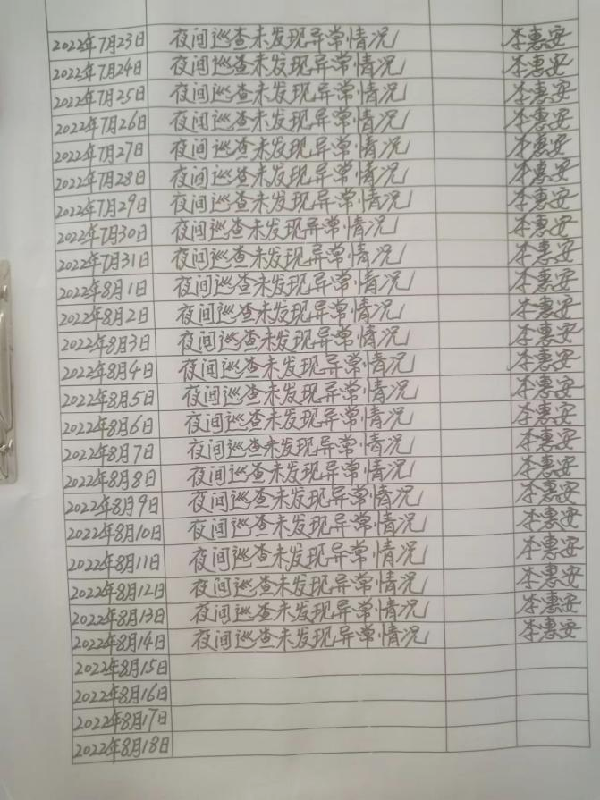 2022年7月23日 夜间巡查未发现异常情况 李惠安
2022年7月24日 夜间巡查未发现异常情况 李惠安
2022年7月25日 夜间巡查未发现异常情况 李惠安
2022年7月26日 夜间巡查未发现异常情况 李惠安
2022年7月27日 夜间巡查未发现异常情况 李惠安
2022年7月28日 夜间巡查未发现异常情况 李惠安
2022年7月29日 夜间巡查未发现异常情况 李惠安
2022年7月30日 夜间巡查未发现异常情况 李惠安
2022年7月31日 夜间巡查未发现异常情况 李惠安
2022年8月1日 夜间巡查未发现异常情况 李惠安
2022年8月2日 夜间巡查未发现异常情况 李惠安
2022年8月3日 夜间巡查未发现异常情况 李惠安
2022年8月4日 夜间巡查未发现异常情况 李惠安
2022年8月5日 夜间巡查未发现异常情况 李惠安
2022年8月6日 夜间巡查未发现异常情况 李惠安
2022年8月7日 夜间巡查未发现异常情况 李惠安
2022年8月8日 夜间巡查未发现异常情况 李惠安
2022年8月9日 夜间巡查未发现异常情况 李惠安
2022年8月10日 夜间巡查未发现异常情况 李惠安
2022年8月11日 夜间巡查未发现异常情况 李惠安
2022年8月12日 夜间巡查未发现异常情况 李惠安
2022年8月13日 夜间巡查未发现异常情况 李惠安
2022年8月14日 夜间巡查未发现异常情况 李惠安
2022年8月15日
2022年8月16日
2022年8月17日
2022年8月18日